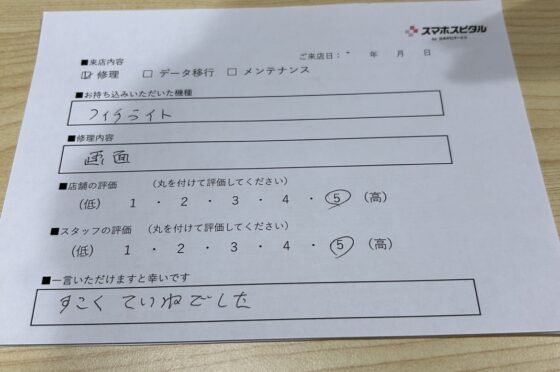 スマホスピタル
■来店内容
ご来店日： 年 月 日
☑ 修理 □ データ移行 □ メンテナンス
■お持ち込みいただいた機種
スイッチライト
■修理内容
画面
■店舗の評価 （丸を付けて評価してください）
（低） 1 ・ 2 ・ 3 ・ 4 ・ 5 （高）
■スタッフの評価 （丸を付けて評価してください）
（低） 1 ・ 2 ・ 3 ・ 4 ・ 5 （高）
■一言いただけますと幸いです
すごく ていねでした